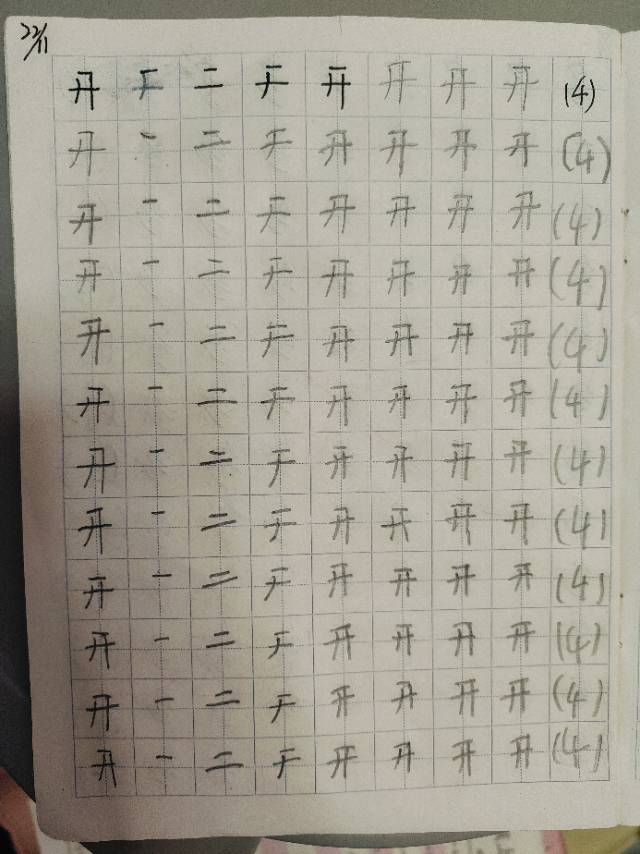 22/11
开 二 开 开 开 开 (4)
开 一 二 开 开 开 开 (4)
开 一 二 开 开 开 开 (4)
开 一 二 开 开 开 开 (4)
开 一 二 开 开 开 开 (4)
开 一 二 开 开 开 开 (4)
开 一 二 开 开 开 开 (4)
开 一 二 开 开 开 开 (4)
开 一 二 开 开 开 开 (4)
开 一 二 开 开 开 开 (4)
开 一 二 开 开 开 开 (4)
开 一 二 开 开 开 开 (4)